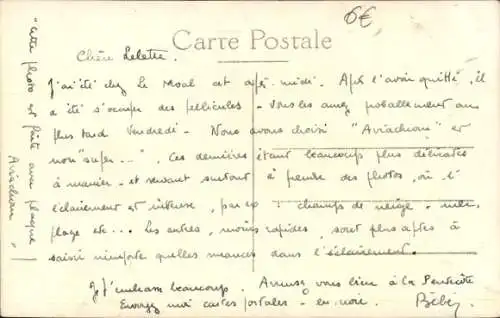 6€
Carte Postale
Chère Lolotte.
J'ai été chez Le Moal cet après-midi. Après l'avoir quitté, il
a été s'occuper des pellicules - Vous les aurez probablement au
plus tard Vendredi - Nous avons choisi "Aviachrom" et
non "super..." . Ces dernières étant beaucoup plus délicates
à manier - et servant surtout à prendre des photos, où l'
éclairement est intense, par ex : champs de neige - mer,
plage etc... Les autres, moins rapides, sont plus aptes à
saisir n'importe quelles nuances dans l'éclairement.
Je t'embrasse beaucoup. Amusez vous bien à la Pentecôte
Envoyez moi cartes postales - en noir. Bébé
"Cette photo est faite avec plaque
Aviachrom"